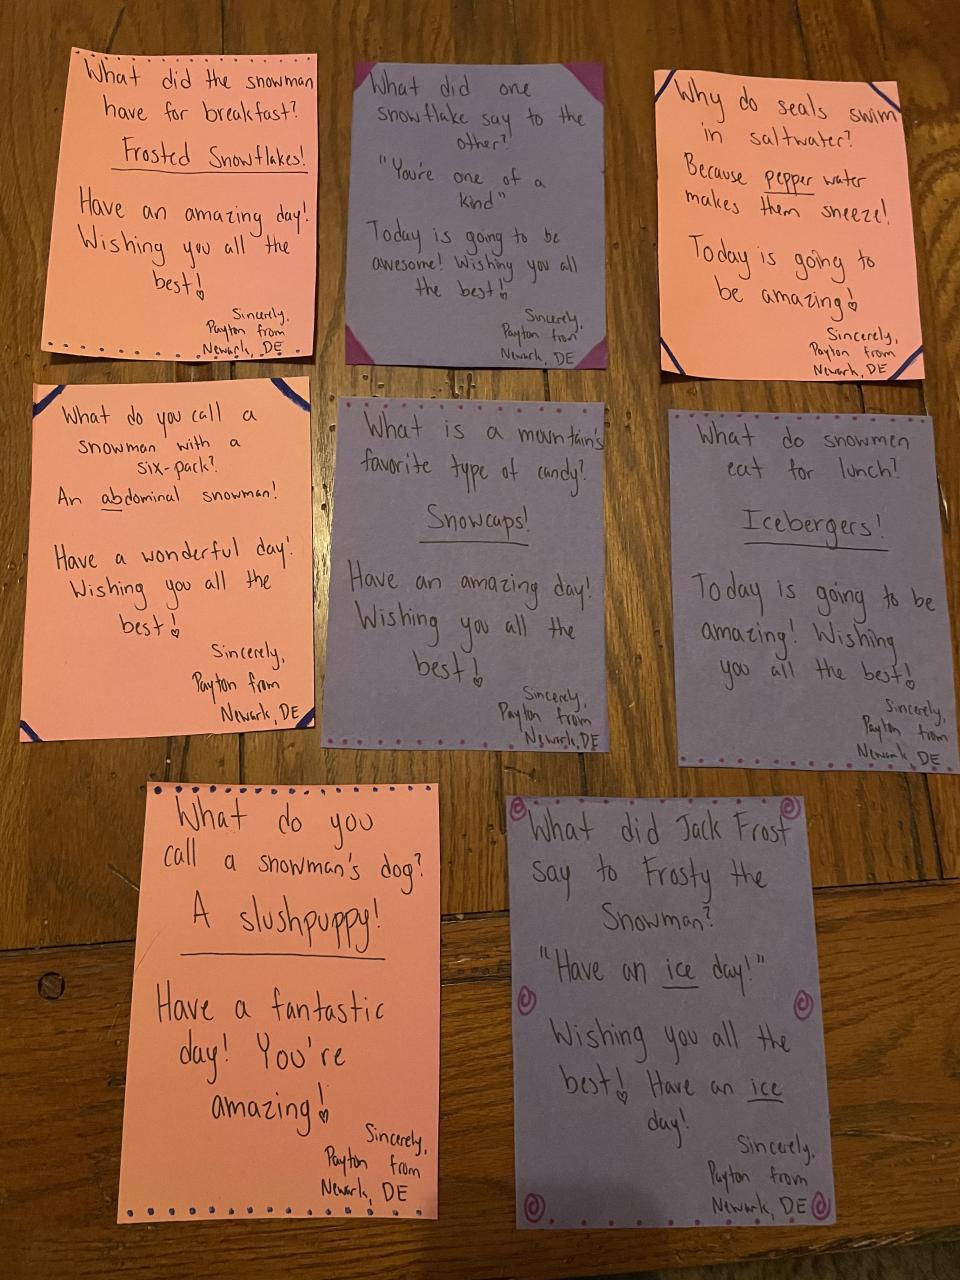 What did the snowman
have for breakfast?
Frosted Snowflakes!
Have an amazing day!
Wishing you all the
best!
Sincerely,
Payton from
Newark, DE
What did one
snowflake say to the
other?
"You're one of a
kind"
Today is going to be
awesome! Wishing you all
the best!
Sincerely,
Payton from
Newark, DE
Why do seals swim
in saltwater?
Because pepper water
makes them sneeze!
Today is going to
be amazing!
Sincerely,
Payton from
Newark, DE
What do you call a
snowman with a
six-pack?
An abdominal snowman!
Have a wonderful day!
Wishing you all the
best!
Sincerely,
Payton from
Newark, DE
What is a mountain's
favorite type of candy?
Snowcaps!
Have an amazing day!
Wishing you all the
best!
Sincerely,
Payton from
Newark, DE
What do snowmen
eat for lunch?
Icebergers!
Today is going to be
amazing! Wishing
you all the best!
Sincerely,
Payton from
Newark, DE
What do you
call a snowman's dog?
A slushpuppy!
Have a fantastic
day! You're
amazing!
Sincerely,
Payton from
Newark, DE
What did Jack Frost
say to Frosty the
Snowman?
"Have an ice day!"
Wishing you all the
best! Have an ice
day!
Sincerely,
Payton from
Newark, DE